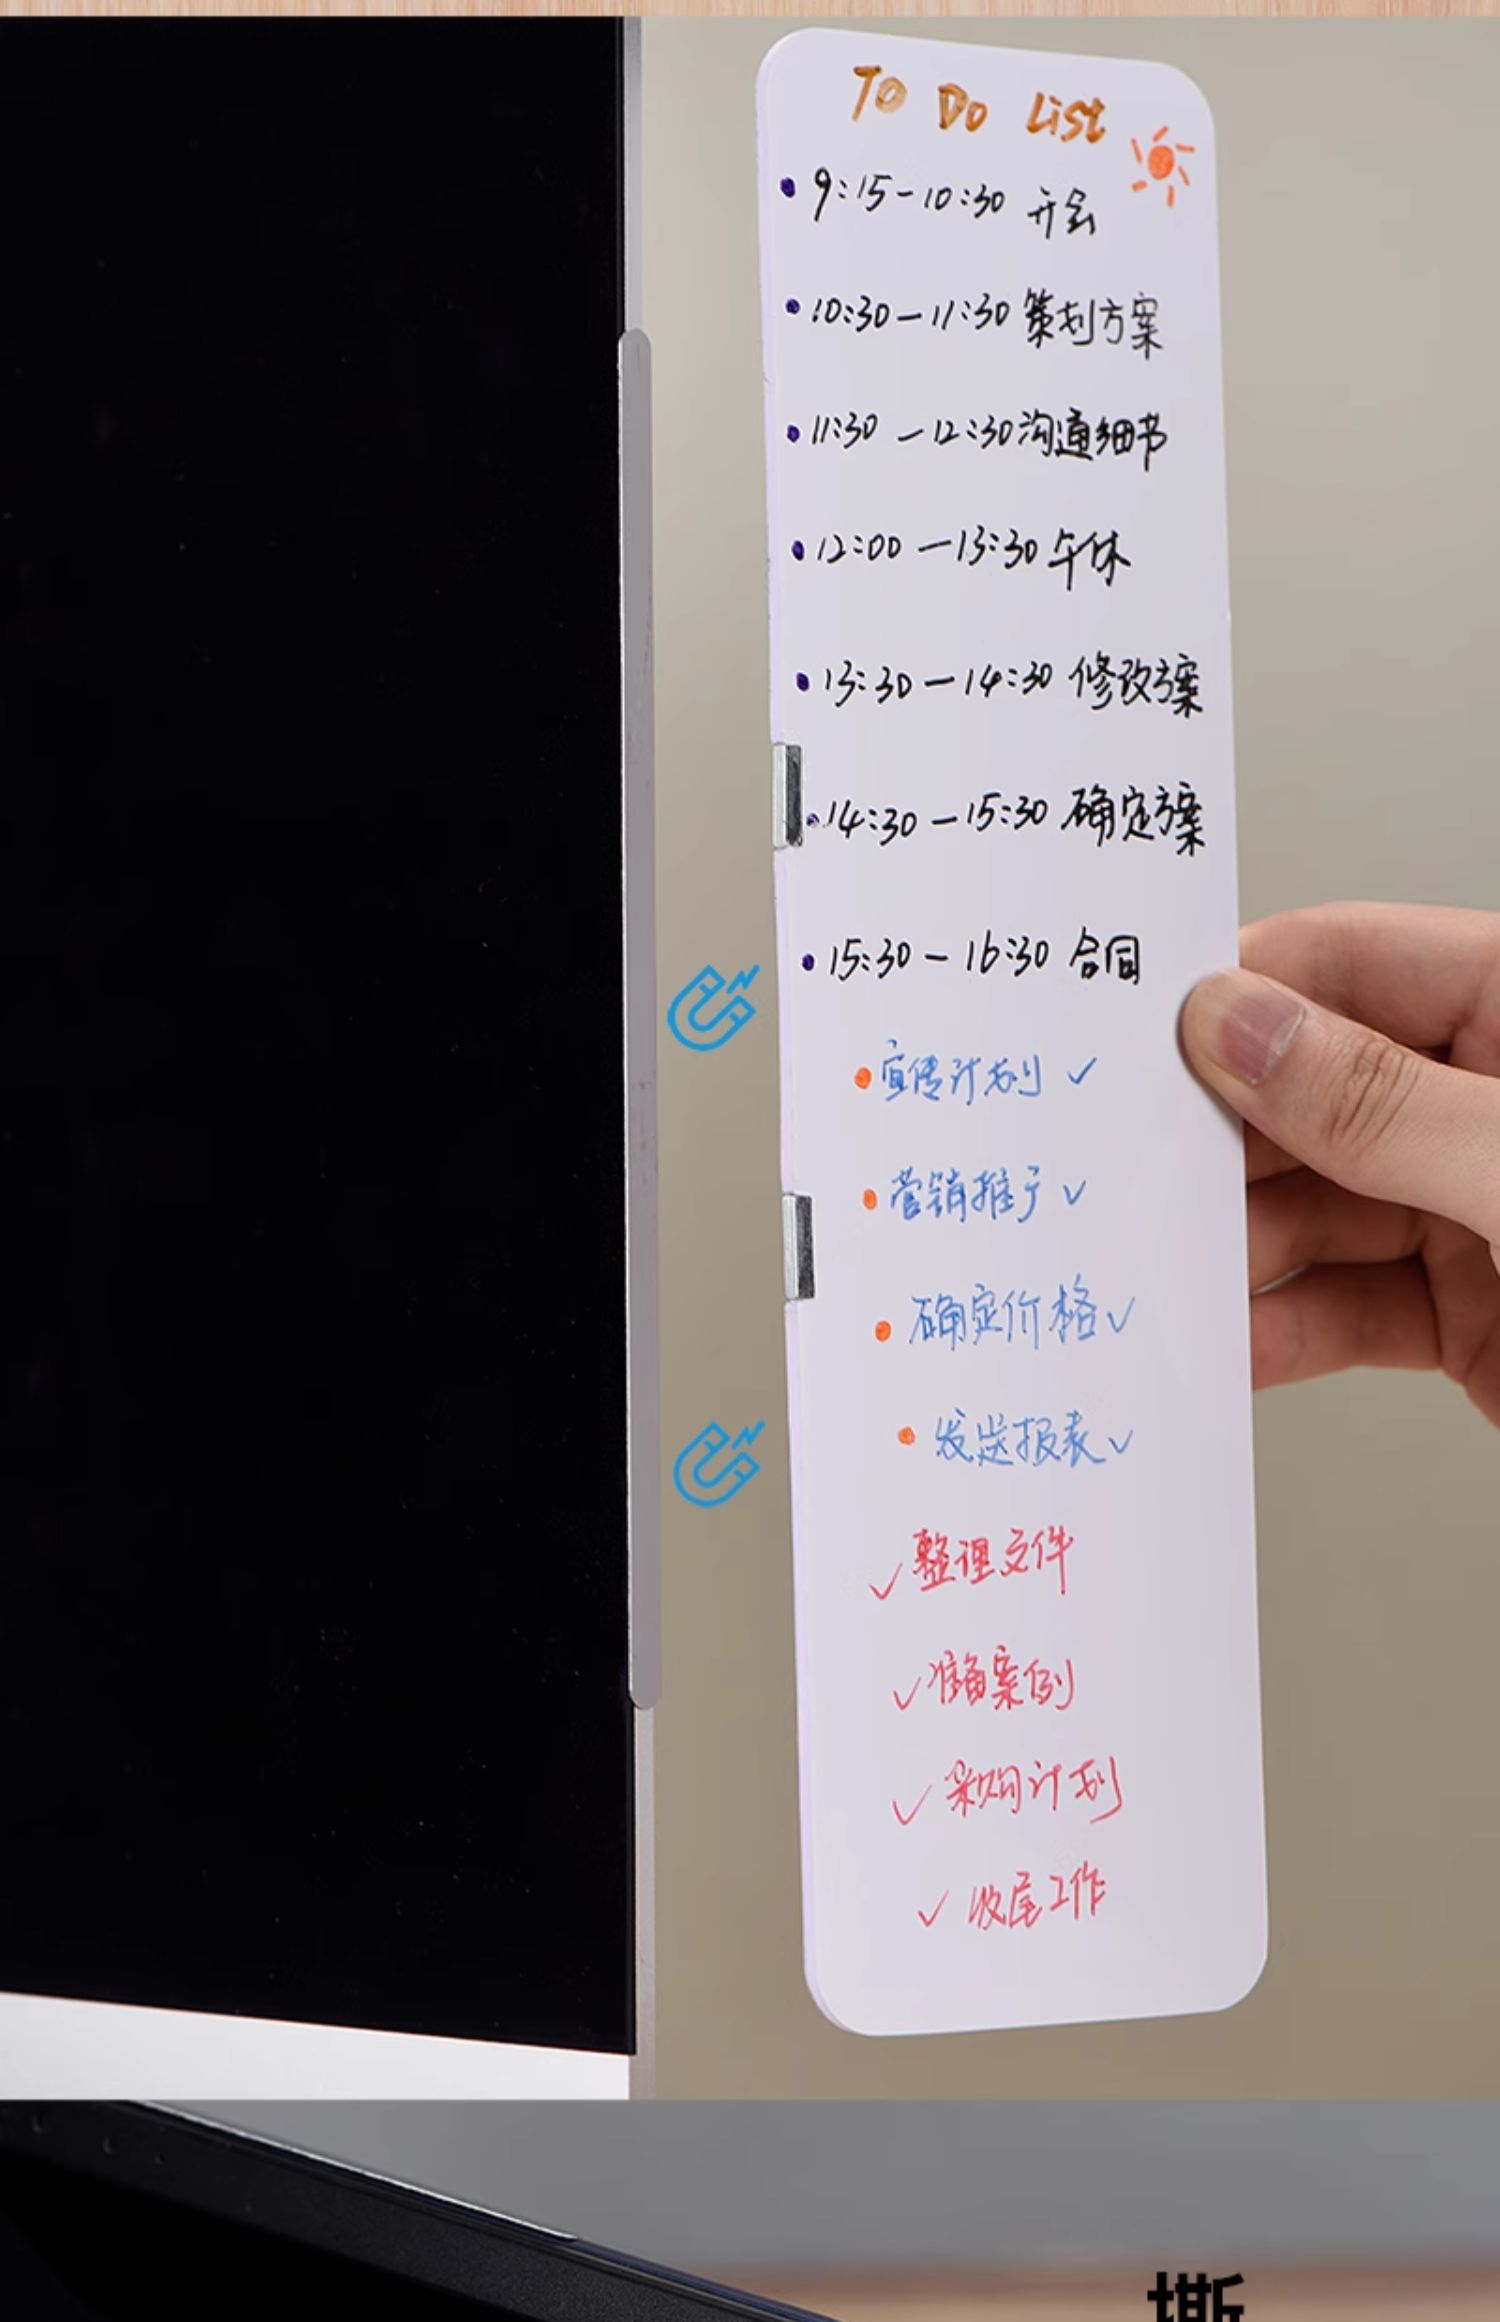 To Do List
9:15-10:30 开会
10:30-11:30 策划方案
11:30-12:30 沟通细节
12:00-13:30 午休
13:30-14:30 修改方案
14:30-15:30 确定方案
15:30-16:30 合同
宣传计划 ✓
营销推广 ✓
确定价格 ✓
发送报表 ✓
✓ 整理文件
✓ 准备案例
✓ 采购计划
✓ 收尾工作
撕